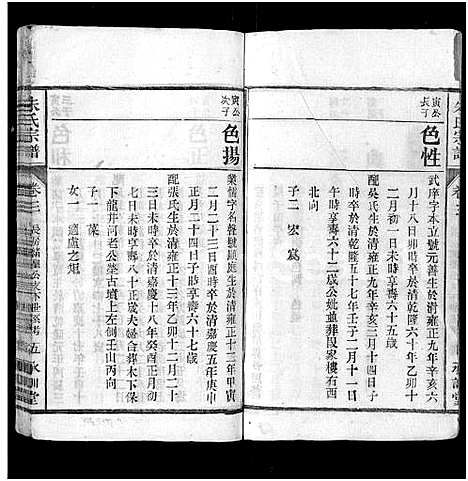 寅公
長子
色性
武庠字本立號元善生於清雍正九年辛亥六
月十八日辛時卒於清乾隆六十年乙卯十
二月初一日未時享壽六十五歲
配吳氏生於清雍正九年辛亥三月十四日子
時卒於清乾隆五十七年壬子二月十一日
午時享壽六十二歲公妣並葬段家樓有酉
北向
子二 宏 寫
寅公
次子
色揚
業儒字名聲號顯庭生於清雍正十二年甲寅
二月二十三日酉時卒於清嘉慶五年庚申
正月二十四日子時享壽六十七歲
配張氏生於清雍正十三年乙卯十二月二十
三日未時卒於清嘉慶十八年癸酉正月初
七日未時享壽八十正歲夫婦合葬木下保
下龍井河老公塋古墳上左側壬山丙向
子一 葆
女一 適盧之炬
朱氏宗譜
卷三
五
永訓堂